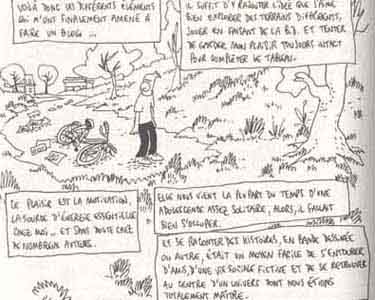 VOILÀ DONC LES DIFFÉRENTS ÉLÉMENTS
QUI M'ONT FINALEMENT AMENÉ À
FAIRE UN BLOG ...
IL SUFFIT D'Y RAJOUTER L'IDÉE QUE J'AIME
BIEN EXPLORER DES TERRAINS DIFFÉRENTS,
JOUER EN FAISANT DE LA B.D. ET TENTER
DE GARDER MON PLAISIR TOUJOURS INTACT
POUR COMPLÉTER LE TABLEAU.
LE PLAISIR EST LA MOTIVATION,
LA SOURCE D'ÉNERGIE ESSENTIELLE
CHEZ MOI ... ET SANS DOUTE CHEZ
DE NOMBREUX AUTEURS.
ELLE NOUS VIENT LA PLUPART DU TEMPS D'UNE
ADOLESCENCE ASSEZ SOLITAIRE, ALORS, IL FALLAIT
BIEN S'OCCUPER.
ET SE RACONTER DES HISTOIRES, EN BANDE DESSINÉE
OU AUTRE, ÉTAIT UN MOYEN FACILE DE S'ENTOURER
D'AMIS, D'UNE VIE SOCIALE FICTIVE ET DE SE RETROUVER
AU CENTRE D'UN UNIVERS DONT NOUS ÉTIONS
TOTALEMENT MAÎTRE.